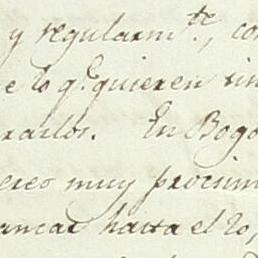 y regularm.te, co
e lo q.e quieren sin
rarlos. En Bogo
eres muy procsim
ancar hasta el 20,